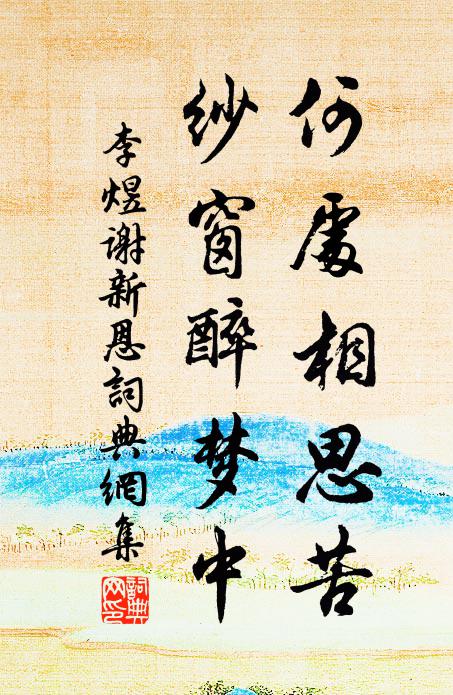 何處相思苦
紗窗醉梦中
李煜谢新恩詞典網集
詞典